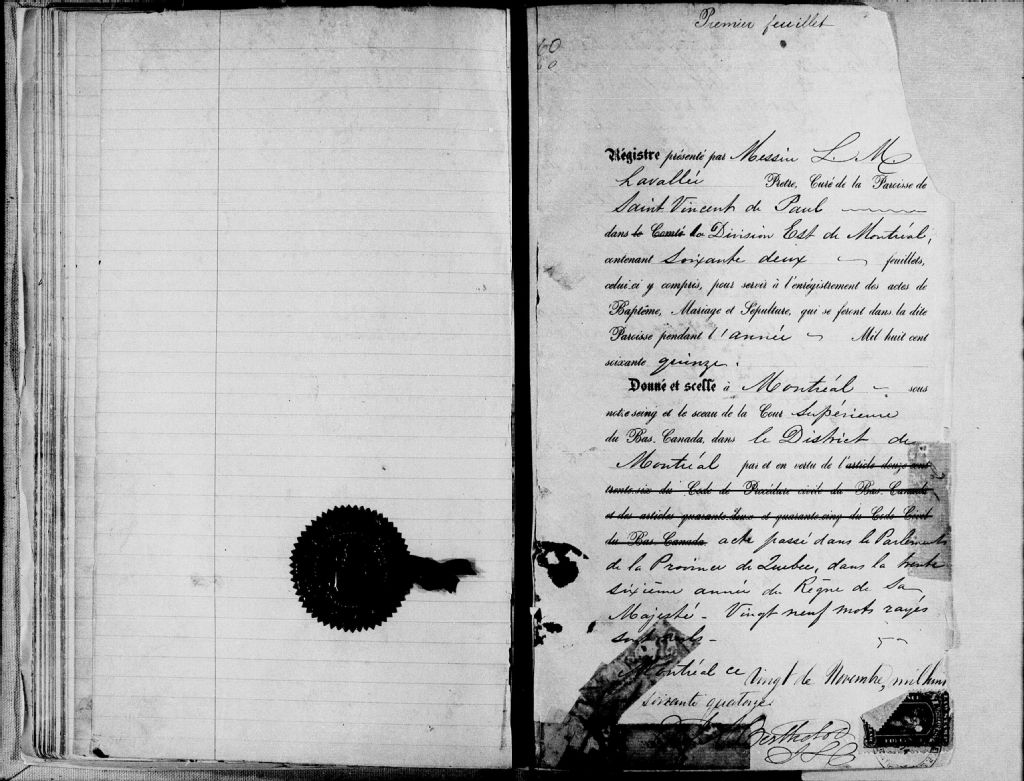 Premier feuillet
60
60
Régistre présenté par Messire L. M.
Lavallée Prêtre, Curé de la Paroisse de
Saint Vincent de Paul
dans le Comté la Division Est de Montréal,
contenant Soixante deux feuillets,
celui ci y compris, pour servir à l'enrégistrement des actes de
Baptême, Mariage et Sépulture, qui se feront dans la dite
Paroisse pendant l'année Mil huit cent
soixante quinze.
Donné et scellé à Montréal sous
notre seing et le sceau de la Cour Supérieure
du Bas. Canada, dans le District de
Montréal par et en vertu de l'article douze cent
trente-six du Code de Procédure civile du Bas. Canada
et des articles quarante-deux et quarante-cinq du Code Civil
du Bas Canada acte passé dans le Parlement
de la Province de Quebec, dans la trente
sixième année du Règne de Sa
Majesté - Vingt neuf mots rayés
sont nuls -
Montréal ce vingt de Novembre, mil huit
soixante quatorze